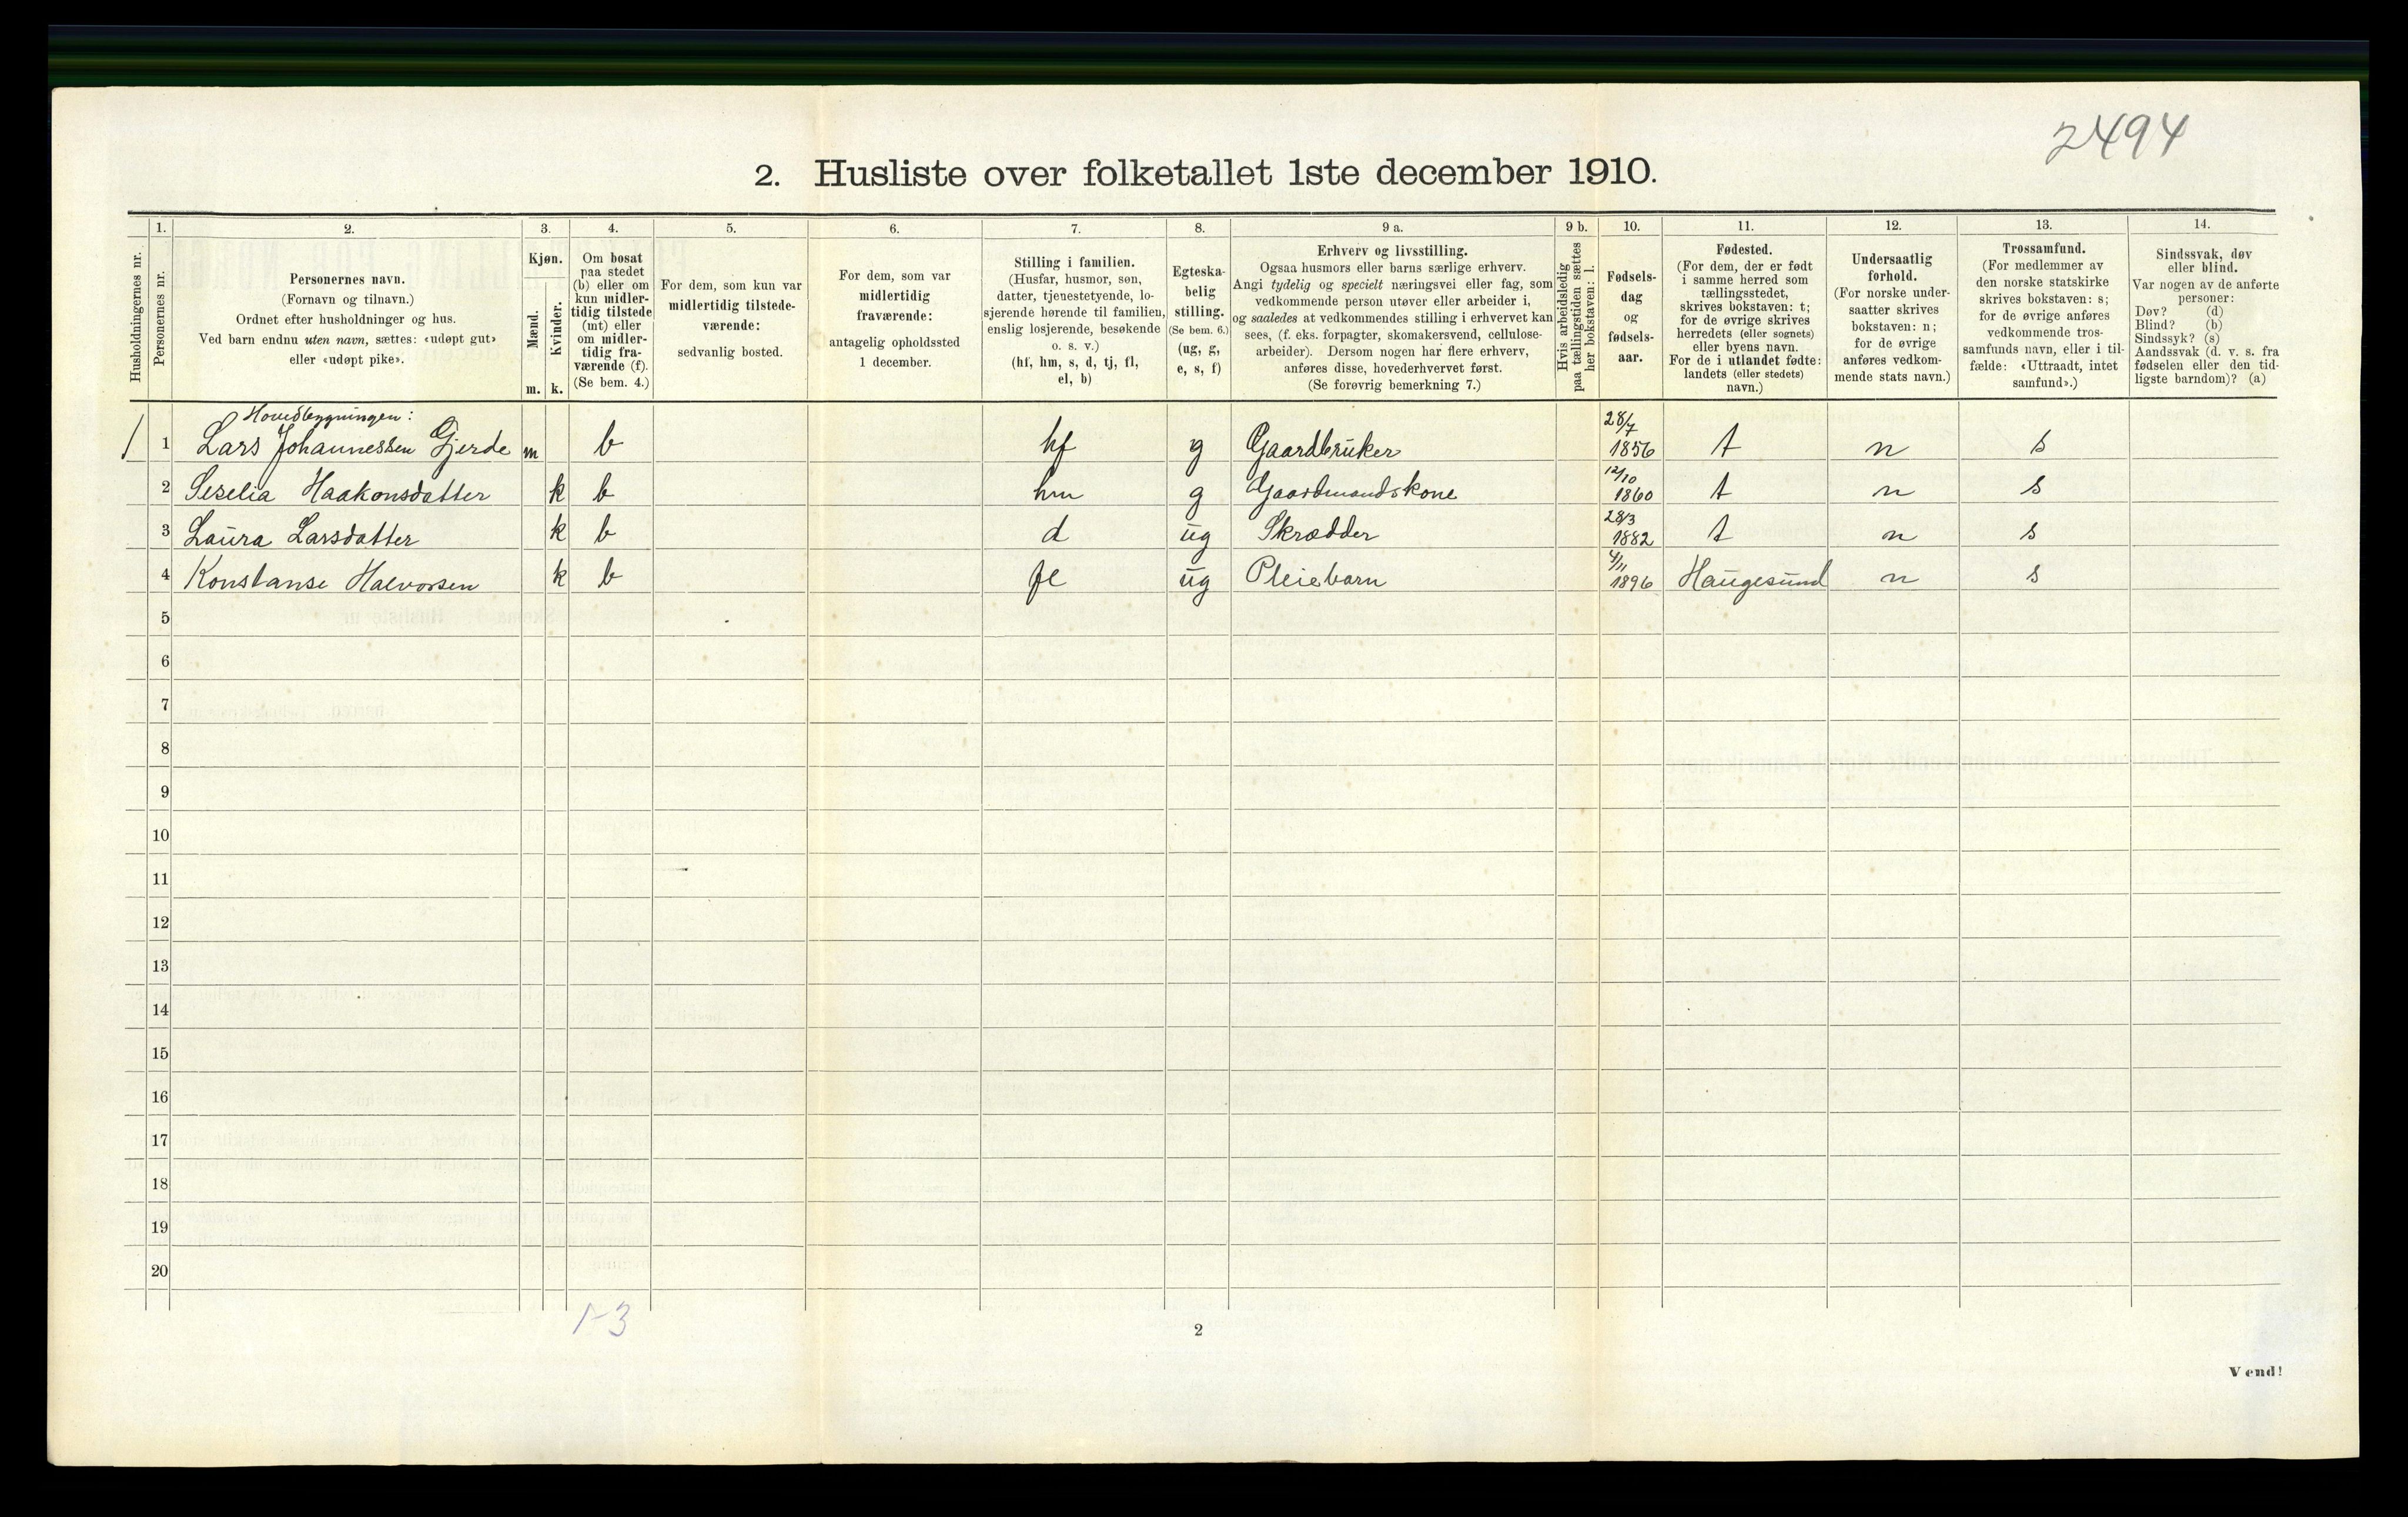 2494
2. Husliste over folketallet 1ste december 1910.
Husholdningernes nr.
1.
Personernes nr.
2.
Personernes navn.
(Fornavn og tilnavn.)
Ordnet efter husholdninger og hus.
Ved barn endnu uten navn, sættes: «udøpt gut»
eller «udøpt pike».
3.
Kjøn.
Mænd.
m.
Kvinder.
k.
4.
Om bosat
paa stedet
(b) eller om
kun midler-
tidig tilstede
(mt) eller
om midler-
tidig fra-
værende (f).
(Se bem. 4.)
5.
For dem, som kun var
midlertidig tilstede-
værende:
sedvanlig bosted.
6.
For dem, som var
midlertidig
fraværende:
antagelig opholdssted
1 december.
7.
Stilling i familien.
(Husfar, husmor, søn,
datter, tjenestetyende, lo-
sjerende hørende til familien,
enslig losjerende, besøkende
o. s. v.)
(hf, hm, s, d, tj, fl,
el, b)
8.
Egteska-
belig
stilling.
(Se bem. 6.)
(ug, g,
e, s, f)
9 a.
Erhverv og livsstilling.
Ogsaa husmors eller barns særlige erhverv.
Angi tydelig og specielt næringsvei eller fag, som
vedkommende person utøver eller arbeider i,
og saaledes at vedkommendes stilling i erhvervet kan
sees, (f. eks. forpagter, skomakersvend, cellulose-
arbeider). Dersom nogen har flere erhverv,
anføres disse, hovederhvervet først.
(Se forøvrig bemerkning 7.)
9 b.
Hvis arbeidsledig
paa tællingstiden sættes
her bokstaven: l.
10.
Fødsels-
dag
og
fødsels-
aar.
11.
Fødested.
(For dem, der er født
i samme herred som
tællingsstedet,
skrives bokstaven: t;
for de øvrige skrives
herredets (eller sognets)
eller byens navn.
For de i utlandet fødte:
landets (eller stedets)
navn.)
12.
Undersaatlig
forhold.
(For norske under-
saatter skrives
bokstaven: n;
for de øvrige
anføres vedkom-
mende stats navn.)
13.
Trossamfund.
(For medlemmer av
den norske statskirke
skrives bokstaven: s;
for de øvrige anføres
vedkommende tros-
samfunds navn, eller i til-
fælde: «Uttraadt, intet
samfund».)
14.
Sindssvak, døv
eller blind.
Var nogen av de anførte
personer:
Døv? (d)
Blind? (b)
Sindssyk? (s)
Aandssvak (d. v. s. fra
fødselen eller den tid-
ligste barndom)? (a)
Hovedbygningen:
1 1 Lars Johannessen Gjerde m b hf g Gaardbruker 28/7 1856 t n s
2 Seselia Haakonsdatter k b hm g Gaardmandskone 12/10 1860 t n s
3 Laura Larsdatter k b d ug Skrædder 28/3 1882 t n s
4 Konstanse Halvorsen k b fl ug Pleiebarn 4/11 1896 Haugesund n s
5
6
7
8
9
10
11
12
13
14
15
16
17
18
19
20
1-3
2
Vend!